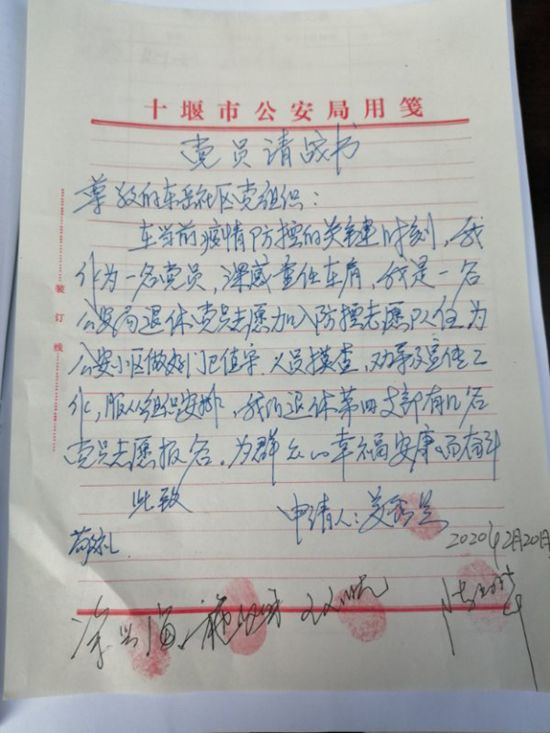 十堰市公安局用笺
党员请战书
尊敬的东岳社区党组织：
在当前疫情防控的关键时刻，我
作为一名党员，深感责任在肩，我是一名
公安局退休党员志愿加入防控志愿队伍为
公安小区做好门卫值守、人员摸查，劝导及宣传工
作，服从组织安排，我们退休第四支部有几名
党员志愿报名。为群众的幸福安康而奋斗
此致
申请人：
敬礼
2020年2月20日
装订线